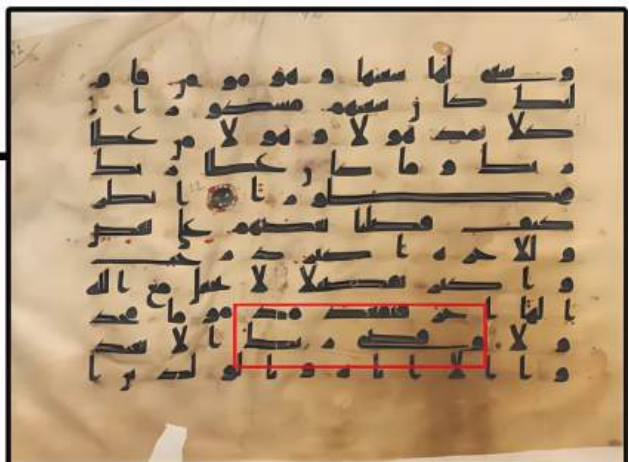 وسعى لها سعيها وهو مومن فاو
لئك كان سعيهم مشكورا
كلا نمد هولا وهولا من عطا
ربك وما كان عطا ربك
محظورا انظر
كيف فضلنا بعضهم على بعض
وللاخرة اكبر درجت
واكبر تفضيلا لا تجعل مع الله
الها اخر فتقعد مذموما مخذ
ولا وقضى ربك الا تعبد
وا الا اياه وبالولدين ا